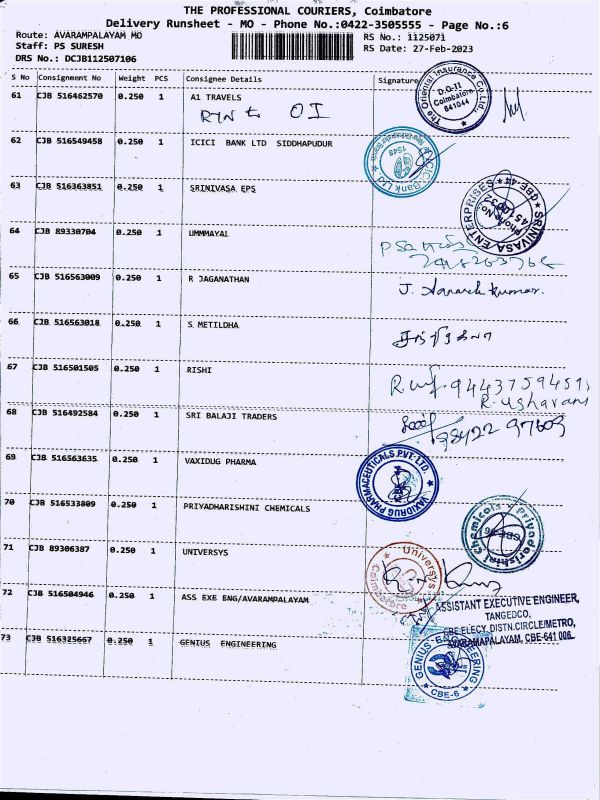 THE PROFESSIONAL COURIERS, Coimbatore
Delivery Runsheet - MO - Phone No.:0422-3505555 - Page No.:6
Route: AVARAMPALAYAM MO RS No.: 1125071
Staff: PS SURESH RS Date: 27-Feb-2023
DRS No.: DCJB112507106
S No Consignment No Weight PCS Consignee Details Signature
61 CJB 516462570 0.250 1 A1 TRAVELS
RTN to OI
The Oriental Insurance Co.Ltd.
D.O-II
Coimbatore
641044
62 CJB 516549458 0.250 1 ICICI BANK LTD SIDDHAPUDUR
ICICI Bank Ltd
1548
63 CJB 516363851 0.250 1 SRINIVASA EPS
SRINIVASA ENTERPRISES
64 CJB 89330704 0.250 1 UMMMAYAL
65 CJB 516563009 0.250 1 R JAGANATHAN
66 CJB 516563018 0.250 1 S METILDHA
67 CJB 516501505 0.250 1 RISHI
R. usharani
68 CJB 516492584 0.250 1 SRI BALAJI TRADERS
69 CJB 516563635 0.250 1 VAXIDUG PHARMA
VAXIDRUG PHARMACEUTICALS PVT. LTD.
70 CJB 516533809 0.250 1 PRIYADHARISHINI CHEMICALS
Priyadarishini Chemicals
71 CJB 89306387 0.250 1 UNIVERSYS
Universys
Coimbatore
72 CJB 516504946 0.250 1 ASS EXE ENG/AVARAMPALAYAM
ASSISTANT EXECUTIVE ENGINEER,
TANGEDCO,
CBE ELECY. DISTN.CIRCLE/METRO,
AVARAMAPALAYAM, CBE-641 006.
73 CJB 516325667 0.250 1 GENIUS ENGINEERING
GENIUS ENGINEERING
CBE-6